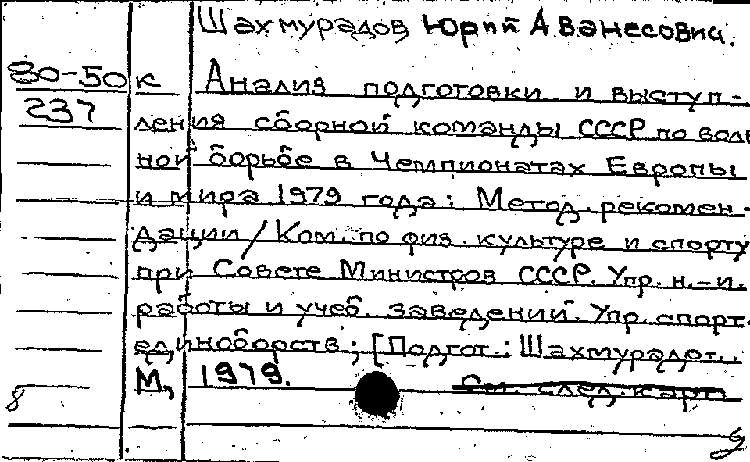 Шахмурадов Юрий Аванесович.
80-50 к Анализ подготовки и выступ-
237 ления сборной команды СССР по воль
ной борьбе в Чемпионатах Европы
и мира 1979 года: Метод. рекомен-
дации / Ком. по физ. культуре и спорту
при Совете Министров СССР. Упр. н.-и.
работы и учеб. заведений. Упр. спорт.
единоборств; [Подгот.: Шахмурадот..
М., 1979. См. след. карт
8